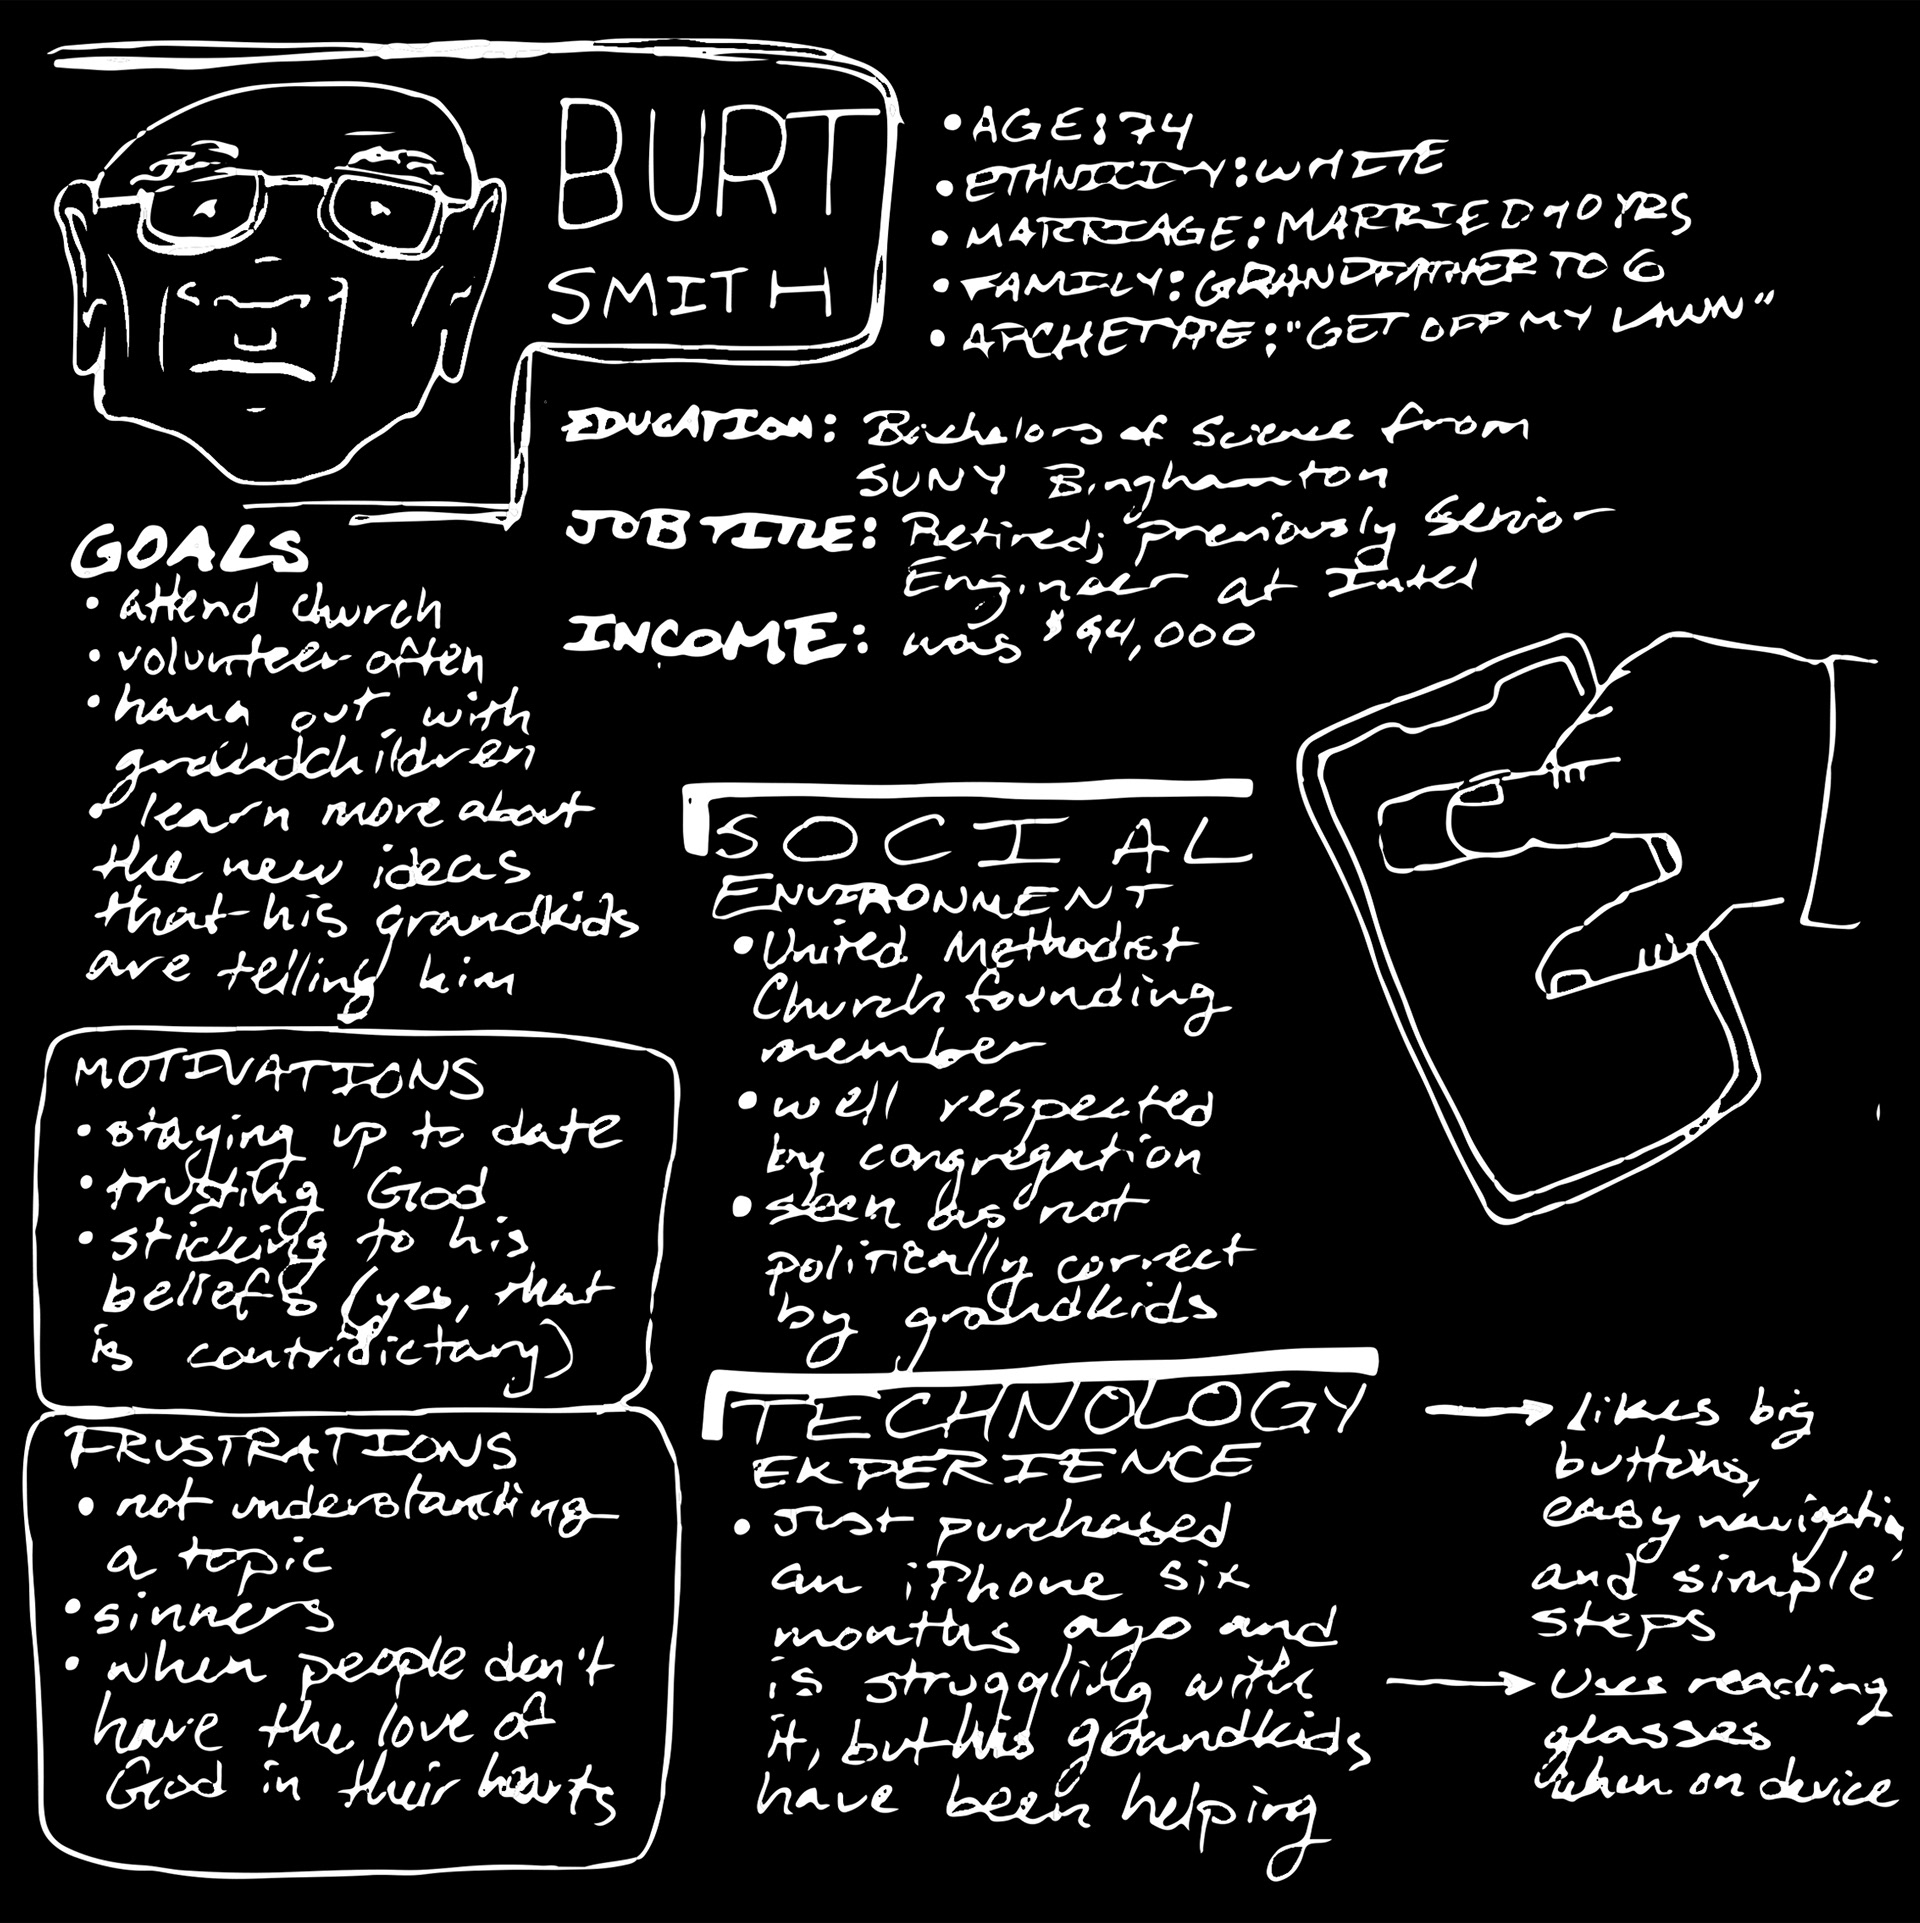 BURT
SMITH
• AGE: 74
• ETHNICITY: WHITE
• MARRIAGE: MARRIED 40 YRS
• FAMILY: GRANDFATHER TO 6
• ARCHETYPE: "GET OFF MY LAWN"
EDUCATION: Bachelors of Science from
SUNY Binghamton
JOB TITLE: Retired; previously Senior
Engineer at Intel
INCOME: was $94,000
GOALS
• attend church
• volunteer often
• hang out with
grandchildren
• learn more about
the new ideas
that his grandkids
are telling him
MOTIVATIONS
• staying up to date
• trusting God
• sticking to his
beliefs (yes, that
is contridictary)
FRUSTRATIONS
• not understanding
a topic
• sinners
• when people don't
have the love of
God in their hearts
SOCIAL
ENVIRONMENT
• United Methodist
Church founding
member
• well respected
by congregation
• seen as not
politically correct
by grandkids
TECHNOLOGY
EXPERIENCE
• Just purchased
an iPhone six
months ago and
is struggling with
it, but his grandkids
have been helping
→ likes big
buttons,
easy navigation
and simple
steps
→ Uses reading
glasses
when on device